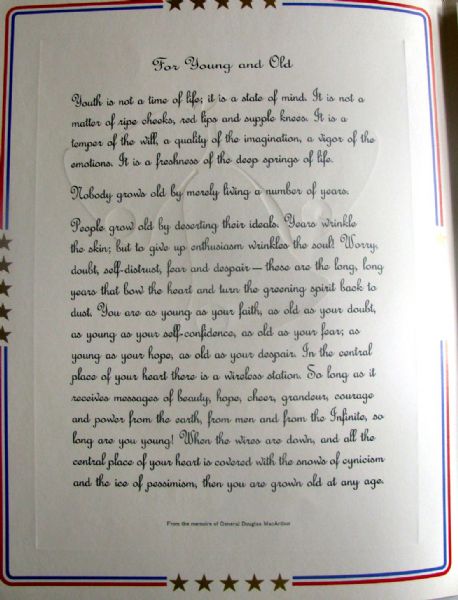 For Young and Old
Youth is not a time of life; it is a state of mind. It is not a
matter of ripe cheeks, red lips and supple knees. It is a
temper of the will, a quality of the imagination, a vigor of the
emotions. It is a freshness of the deep springs of life.
Nobody grows old by merely living a number of years.
People grow old by deserting their ideals. Years wrinkle
the skin; but to give up enthusiasm wrinkles the soul! Worry,
doubt, self-distrust, fear and despair — these are the long, long
years that bow the heart and turn the greening spirit back to
dust. You are as young as your faith, as old as your doubt,
as young as your self-confidence, as old as your fear; as
young as your hope, as old as your despair. In the central
place of your heart there is a wireless station. So long as it
receives messages of beauty, hope, cheer, grandeur, courage
and power from the earth, from men and from the Infinite, so
long are you young! When the wires are down, and all the
central place of your heart is covered with the snows of cynicism
and the ice of pessimism, then you are grown old at any age.
From the memoirs of General Douglas MacArthur